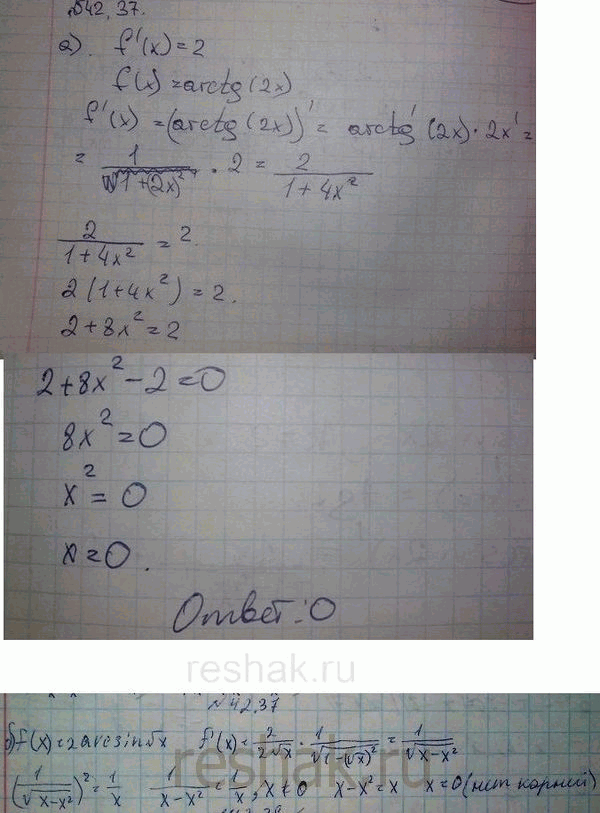 №42,37.
а). f'(x) = 2
f(x) = arctg(2x)
f'(x) = (arctg(2x))' = arctg'(2x) · 2x' =
= 1/(1+(2x)²) · 2 = 2/(1+4x²)
2/(1+4x²) = 2.
2(1+4x²) = 2.
2+8x² = 2
2+8x²-2=0
8x²=0
x²=0
x=0.
Ответ: 0
reshak.ru
№42.37
б) f(x)=2arcsin√x f'(x)=2/(2√x) · 1/√(1-(√x)²) = 1/√(x-x²)
(1/√(x-x²))² = 1/x 1/(x-x²) = 1/x, x≠0 x-x²=x x=0 (нет корней)
reshak.ru